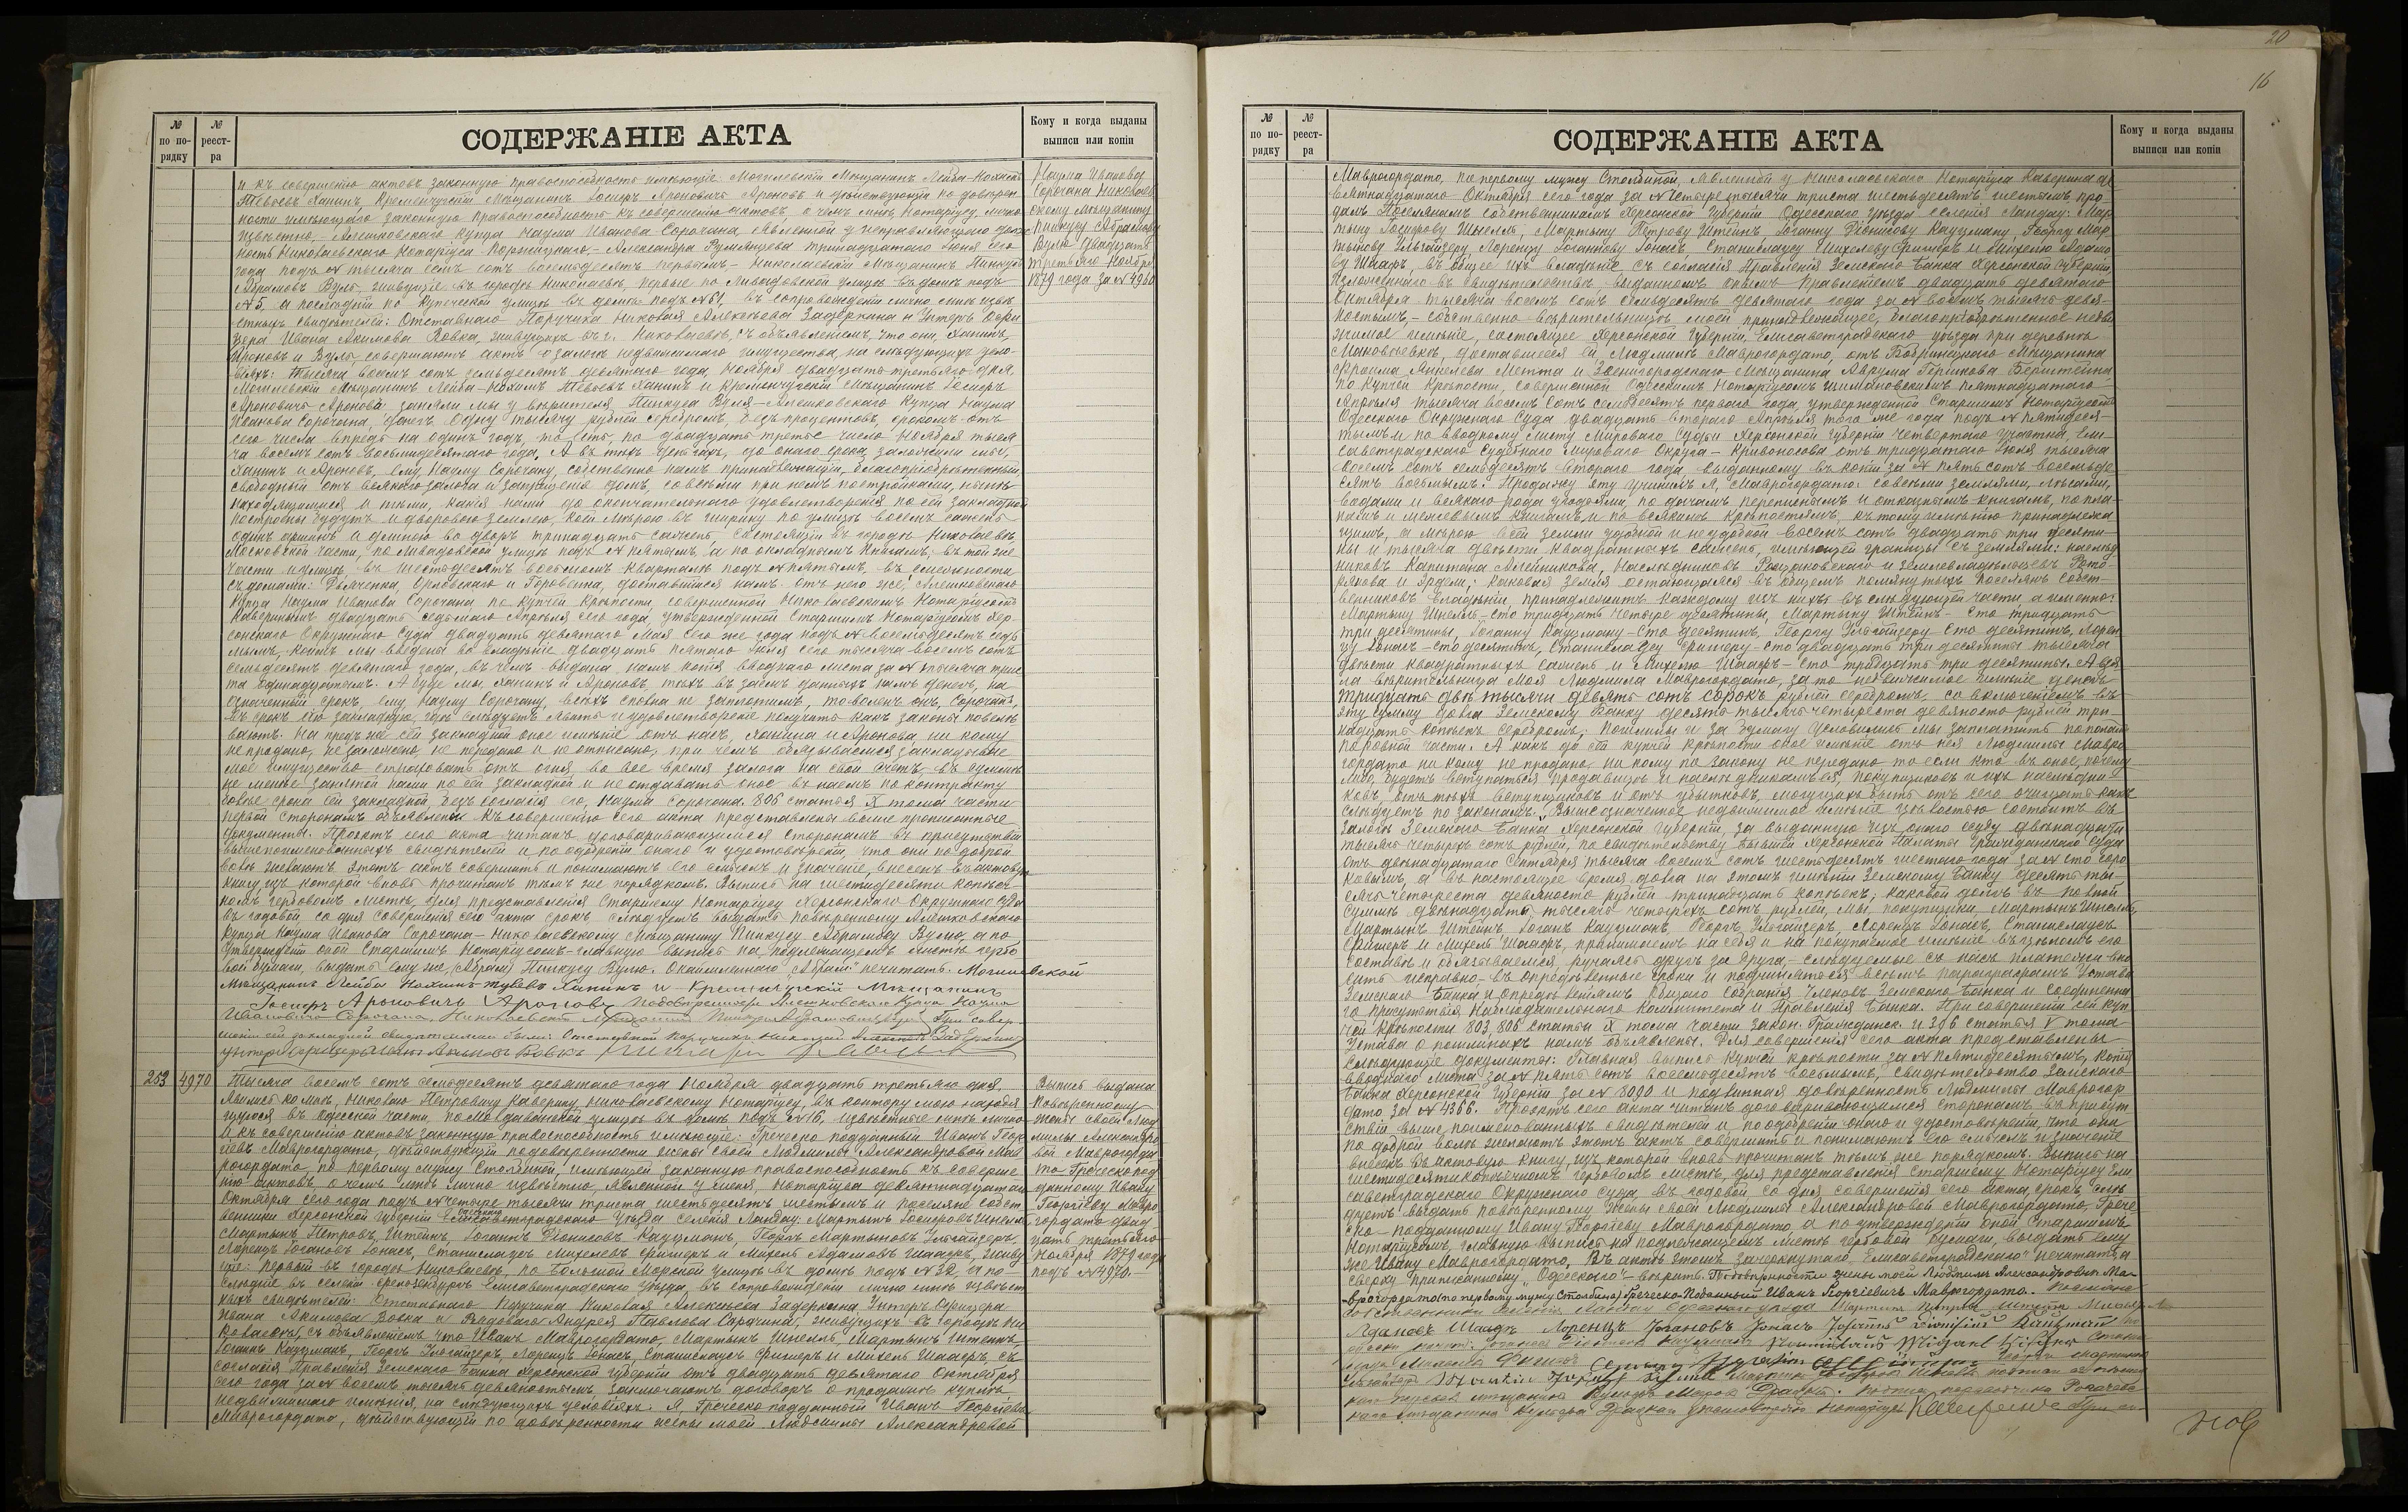 20
16
№ по по-рядку
№ реест-ра
СОДЕРЖАНІЕ АКТА
Кому и когда выданы выписи или копіи
и къ совершенію актовъ законную правоспособность имѣющіе: Могилевскій Мѣщанинъ Лейба-Нохимъ
Тевьевъ Ханинъ, Кременчугскій Мѣщанинъ Іосифъ Ароновичъ Ароновъ и дѣйствующій по довѣрен
ности имѣющаго законную правоспособность къ совершенію актовъ, о чемъ мнѣ Нотаріусу лично
извѣстно, Алешковскаго купца Наума Иванова Сорочана, явленной у исправляющаго долж
ность Николаевскаго Нотаріуса Александра Румянцева тринадцатаго Іюня сего
года подъ № тысяча семь сотъ восемьдесятъ первымъ - Николаевскій Мѣщанинъ Пинкусъ
Абрамовъ Вуль, живущіе въ городѣ Николаевѣ, первые по Ливадовской улицѣ въ домѣ подъ
№ 5, а послѣдній по Купеческой улицѣ въ домѣ подъ № 61, въ сопровожденіи лично мнѣ извѣ
стныхъ свидѣтелей: Отставнаго Поручика Николая Алексѣева Задеркина и Унтеръ Офи
цера Ивана Акимова Вовка, живущихъ въ г. Николаевѣ, съ объявленіемъ, что они, Ханинъ,
Ароновъ и Вуль, совершаютъ актъ о залогѣ недвижимаго имущества, на слѣдующихъ усло
віяхъ: Тысяча восемь сотъ семьдесятъ девятаго года, Ноября двадцать третьяго дня,
Могилевскій Мѣщанинъ Лейба-Нохимъ Тевьевъ Ханинъ и Кременчугскій Мѣщанинъ Іосифъ
Ароновичъ Ароновъ заняли мы у вѣрителя Пинкуса Вуля - Алешковскаго Купца Наума
Иванова Сорочана, денегъ одну тысячу рублей серебромъ, безъ процентовъ, срокомъ отъ
сего числа впредь на одинъ годъ, то есть, по двадцать третье число Ноября тыся
ча восемь сотъ восьмидесятаго года. А въ тѣхъ деньгахъ, до онаго срока заложили мы,
Ханинъ и Ароновъ, ему Науму Сорочану, собственно намъ принадлежащій, благопріобрѣтенный,
свободный отъ всякаго залога и запрещенія домъ, со всѣми при немъ постройками, нынѣ
находящимися и тѣми, какія нами до окончательнаго удовлетворенія по сей закладной
построены будутъ и дворовою землею, коей мѣрою въ ширину по улицѣ восемь сажень
одинъ аршинъ а длиною во дворъ тринадцать сажень, состоящій въ городѣ Николаевѣ,
Московской части, по Ливадовской улицѣ подъ № пятымъ, а по окладнымъ Книгамъ, въ той же
части и улицѣ, въ шестьдесятъ восьмомъ кварталѣ подъ № пятымъ, въ смежности
съ домами: Дьяченка, Орловскаго и Горовенка, доставшійся намъ отъ него же, Алешковскаго
Купца Наума Иванова Сорочана, по Купчей Крѣпости, совершенной Николаевскимъ Нотаріусомъ
Каверинымъ двадцать седьмаго Апрѣля сего года, утвержденной Старшимъ Нотаріусомъ Хер
сонскаго Окружнаго Суда двадцать девятаго Мая сего же года подъ № восемьдесятъ седь
мымъ, коимъ мы введены во владѣніе двадцать пятаго Іюля сего тысяча восемь сотъ
семьдесятъ девятаго года, въ чемъ выдана намъ копія вводнаго листа за № тысяча трис
та одинадцатымъ. А буде мы, Ханинъ и Ароновъ, тѣхъ въ заемъ данныхъ намъ денегъ, на
означенный срокъ, ему Науму Сорочану, всѣхъ сполна не заплотимъ, то воленъ онъ, Сорочанъ,
въ срокъ сію закладную, гдѣ слѣдуетъ явить и удовлетвореніе получить какъ законы повелѣ
ваютъ. На предъ же сей закладной оное имѣніе отъ насъ, Ханина и Аронова, ни кому
не продано, не заложено, не передано и не отписано, при чемъ обязываемся закладывае
мое имущество страховать отъ огня, во все время залога на свой счетъ, въ суммѣ
не менѣе занятой нами по сей закладной и не отдавать оное въ наемъ по контракту
болѣе срока сей закладной, безъ согласія его, Наума Сорочана. 806 статья X тома части
первой сторонамъ объявлены. Къ совершенію сего акта представлены выше прописанные
документы. Проэктъ сего акта читанъ договаривающимся сторонамъ въ присутствіи
вышепоименованныхъ свидѣтелей и, по одобреніи онаго и удостовѣреніи, что они по доброй
волѣ желаютъ этотъ актъ совершить и понимаютъ его смыслъ и значеніе, внесенъ въ актовую
книгу, изъ которой вновь прочитанъ тѣмъ же порядкомъ. Выпись на шестидесяти копѣеч
номъ гербовомъ листѣ, для представленія Старшему Нотаріусу Херсонскаго Окружнаго Суда
въ годовой, со дня совершенія сего акта срокъ слѣдуетъ выдать повѣренному Алешковскаго
купца Наума Иванова Сорочана - Николаевскому Мѣщанину Пинкусу Абрамову Вулю, а по
утвержденіи оной Старшимъ Нотаріусомъ - главную выпись на подлежащемъ листѣ гербо
вой бумаги, выдать ему же, (Абрам) Пинкусу Вулю. Окаймленнаго "Абрам" нечитать. Могилевской
Мещанинъ Лейба Нохимъ Тувевъ Ханинъ и Кременчугскій Мещанинъ
Іосифъ Ароновичъ Ароновъ Подовѣренности Алешковскаго Купца Наума
Ивановича Сорочана, Николаевскій Мѣщанинъ Пинкусъ Абрамовичъ Вуль. При совер
шеніи сей закладной свидѣтелями были: Отставной Поручикъ Николай Алексѣевъ Задеркинъ
Унтеръ Офицеръ Иванъ Акимовъ Вовкъ
Наума Иванова
Сорочана Николаев
скому мѣщанину
Пинкусу Абрамову
Вулю двадцать
третьяго Ноября
1879 года за № 4960
253 4970 Тысяча восемь сотъ семьдесятъ девятаго года Ноября двадцать третьяго дня,
явились ко мнѣ, Николаю Петровичу Каверину, Николаевскому Нотаріусу, въ контору мою находя
щуюся въ Одесской части, по Молдаванской улицѣ въ домѣ подъ № 16, извѣстные мнѣ лично
и къ совершенію актовъ законную правоспособность имѣющіе: Греческо подданный Иванъ Геор
гіевъ Маврогордато, дѣйствующій подовѣренности жены своей Людмилы Александровой Мав
рогордато, по первому мужу Столбиной, имѣющей законную правоспособность къ соверше
нію актовъ, о чемъ мнѣ лично извѣстно, явленной у меня, Нотаріуса девятнадцатаго
Октября сего года подъ № четыре тысячи триста шестьдесятъ шестымъ и поселяне собст
венники Херсонской Губерніи Елисаветградскаго Уѣзда селенія Ландау: Мартынъ Іосифовъ Шнелль
Мартынъ Петровъ Штейнъ, Іоганъ Діонисовъ Кауцманъ, Георгъ Мартыновъ Эльгайзеръ,
Лоренцъ Іогановъ Іонасъ, Станиславъ Михелевъ Фишеръ и Михель Адамовъ Шаафъ, живу
щіе: первый въ городѣ Николаевѣ, по Большой Морской улицѣ въ домѣ подъ № 32, а по
слѣдніе въ селеніи Елисаветградскаго Уѣзда, въ сопровожденіи лично мнѣ извѣст
ныхъ свидѣтелей: Отставнаго Поручика Николая Алексѣева Задеркина, Унтеръ Офицера
Ивана Акимова Вовка и Рядоваго Андрея Павлова Сорочина, живущихъ въ городѣ Ни
колаевѣ, съ объявленіемъ, что Иванъ Маврогордато, Мартынъ Шнелль, Мартынъ Штейнъ,
Іоганъ Кауцманъ, Георгъ Эльгайзеръ, Лоренцъ Іонасъ, Станиславъ Фишеръ и Михель Шаафъ, съ
согласія Правленія Земскаго Банка Херсонской Губерніи отъ двадцать девятаго Октября
сего года за № восемь тысячъ девяностымъ, заключаютъ договоръ о продажѣ купли
недвижимаго имѣнія, на слѣдующихъ условіяхъ: Я, Греческо подданный Иванъ Георгіевъ
Маврогордато, дѣйствующій по довѣренности жены моей Людмилы Александровой
Выпись выдана
повѣренному
жены своей Люд
милы Александро
вой Маврогорда
то Греческо под
данному Ивану
Георгіеву Мавро
гордато двад
цать третьяго
Ноября 1879 года
подъ № 4970.
№ по по-рядку
№ реест-ра
СОДЕРЖАНІЕ АКТА
Кому и когда выданы выписи или копіи
Маврогордато, по первому мужу Столбиной, явленной у Николаевскаго Нотаріуса Каверина де
вятнадцатаго Октября сего года за № четыре тысячи триста шестьдесятъ шестымъ про
далъ Поселянамъ собственникамъ Херсонской Губерніи Одесскаго уѣзда селенія Ландау: Мар
тыну Іосифову Шнелль, Мартыну Петрову Штейнъ, Іоганну Діонисову Кауцману, Георгу Мар
тынову Эльгайзеру, Лоренцу Іоганнову Іонасъ, Станиславу Михелеву Фишеръ и Михелю Адамо
ву Шаафъ, въ общее ихъ владѣніе съ согласія Правленія Земскаго Банка Херсонской Губерніи,
изложеннаго въ свидѣтельствѣ, выданномъ онымъ Правленіемъ двадцать девятаго
Октября тысяча восемь сотъ семьдесятъ девятаго года за № восемь тысячъ девя-
ностымъ, - собственно вѣрительницѣ моей принадлежащее, благопріобрѣтенное недви
жимое имѣніе, состоящее Херсонской Губерніи, Елисаветградскаго уѣзда при деревнѣ
доставшееся ей, Людмилѣ Маврогордато, отъ Бобринецкаго Мѣщанина
и Звенигородскаго Мѣщанина Аврума Берштейна
по Купчей Крѣпости, совершенной Одесскимъ Нотаріусомъ пятнадцатаго
Апрѣля тысяча восемь сотъ семьдесятъ перваго года, утвержденной Старшимъ Нотаріусомъ
Одесскаго Окружнаго Суда двадцать втораго Апрѣля того же года подъ № пятидеся-
тымъ и по вводному листу Мироваго Судьи Херсонской Губерніи четвертаго участка, Ели-
саветградскаго Судебнаго Мироваго Округа - Кривоносова отъ тридцатаго Іюля тысяча
восемь сотъ семьдесятъ втораго года, выданному въ копіи за № пять сотъ восемьде
сятъ восьмымъ. Продажу эту учинилъ я, Маврогордато: со всѣми землями, лѣсами,
водами и всякаго рода угодьями, по дачамъ, переписнымъ и отказнымъ книгамъ, по пла-
намъ и межевымъ книгамъ и по всякимъ крѣпостямъ, къ тому имѣнію принадлежа
щимъ, а мѣрою всей земли удобной и неудобной восемь сотъ двадцать три десяти-
ны и тысяча двѣсти квадратныхъ сажень, имѣющей границы съ землями: наслѣд
никовъ Капитана Алейникова, Наслѣдниковъ и землевладѣльцевъ
и Эрдели; каковая земля оставшаяся въ общемъ помянутыхъ поселянъ собст-
венниковъ владѣніи, принадлежитъ каждому изъ нихъ въ слѣдующей части, а именно:
Мартыну Шнелль - сто тридцать четыре десятины, Мартыну Штейнъ - сто тридцать
три десятины, Іоганну Кауцману - сто десятинъ, Георгу Эльгайзеру - сто десятинъ, Лорен
цу Іонасъ - сто десятинъ, Станиславу Фишеру - сто двадцать три десятины тысяча
двѣсти квадратныхъ сажень и Михелю Шаафъ - сто тридцать три десятины. А взя
ла вѣрительница моя Людмила Маврогордато, за то недвижимое имѣніе денегъ
тридцать двѣ тысячи девять сотъ сорокъ рублей серебромъ, со включеніемъ въ
эту сумму долга Земскому Банку десять тысячъ четыреста девяносто рублей три-
надцать копѣекъ серебромъ. Пошлины и за бумагу условились мы заплатить пополамъ
по ровной части. А какъ до сей купчей крѣпости оное имѣніе отъ нея Людмилы Мавро
гордато ни кому не продано, ни кому по закону не передано то если кто въ оное, почему
либо, будетъ вступаться Продавцѣ и наслѣдникамъ ея, покупщиковъ и ихъ наслѣдни
ковъ, отъ тѣхъ вступщиковъ и отъ убытковъ, могущихъ быть отъ сего очищать какъ
слѣдуетъ по законамъ. Вышеозначенное недвижимое имѣніе цѣлостью состоитъ въ
залогѣ Земскаго Банка Херсонской Губерніи, за выданную изъ онаго ссуду двѣнадцати
тысячъ четырехъ сотъ рублей, по свидѣтельству бывшей Херсонской Палаты Гражданскаго Суда
отъ двѣнадцатаго Сентября тысяча восемь сотъ шестьдесятъ шестаго года за № сто соро
ковымъ, а въ настоящее время долга на этомъ имѣніи Земскому Банку десять ты-
сячъ четыреста девяносто рублей тринадцать копѣекъ; каковой долгъ въ полной
суммѣ двѣнадцать тысячъ четырехъ сотъ рублей, мы, покупщики, Мартынъ Шнелль,
Мартынъ Штейнъ, Іоганъ Кауцманъ, Георгъ Эльгайзеръ, Лоренцъ Іонасъ, Станиславъ
Фишеръ и Михель Шаафъ, принимаемъ на себя и на покупаемое имѣніе въ цѣломъ его
составѣ и обязываемся, ручаясь другъ за друга, - слѣдуемые съ насъ платежи вно
сить исправно - въ опредѣленные сроки и подчиняться всѣмъ параграфамъ Устава
Земскаго Банка и опредѣленіямъ Общаго Собранія членовъ Земскаго Банка и соединенна
го присутствія Наблюдательнаго Комитета и Правленія Банка. При совершеніи сей куп
чей крѣпости 803, 806 статьи X тома части закон. Гражданск. и 396 статья V тома
Устава о пошлинахъ намъ объявлены. Для совершенія сего акта представлены
слѣдующіе документы: Главная выпись купчей крѣпости за № пятидесятымъ, копія
вводнаго листа за № пять сотъ восемьдесятъ восьмымъ, свидѣтельство Земскаго
Банка Херсонской Губерніи за № 8090 и подлинная довѣренность Людмилы Маврогор
дато за № 4366. Проэктъ сего акта читанъ договаривающимся сторонамъ, въ присут
ствіи выше поименованныхъ свидѣтелей и, по одобреніи онаго и удостовѣреніи, что они
по доброй волѣ желаютъ этотъ актъ совершить и понимаютъ его смыслъ и значеніе
внесенъ въ актовую книгу, изъ которой вновь прочитанъ тѣмъ же порядкомъ. Выпись на
шестидесятикопѣечномъ гербовомъ листѣ, для представленія Старшему Нотаріусу Ели
саветградскаго Окружнаго Суда, въ годовой, со дня совершенія сего акта, срокъ, слѣ
дуетъ выдать повѣренному жены своей Людмилы Александровой Маврогордато, Грече
ско - подданному Ивану Георгіеву Маврогордато, а по утвержденіи оной, Старшимъ
Нотаріусомъ, главную выпись на подлежащемъ листѣ гербовой бумаги, выдать ему
же Ивану Маврогордато. Въ актѣ этомъ зачеркнутаго "Елисаветградскаго" нечитать, а
сверху приписанному "Одесскаго" - вѣрить. Подовѣренности жены моей Людмилы Александровны Ма-
врогордато (по первому мужу Столбина) Греческо-Подданный Иванъ Георгіевичъ Маврогордато. Поселяне
собственники селенія Ландау Одесскаго уѣзда Мартынъ Петровъ Штейнъ Михель
Адамовъ Шаафъ Лоренцъ Іогановъ Іонасъ Johannes Dionisius Kautzmann